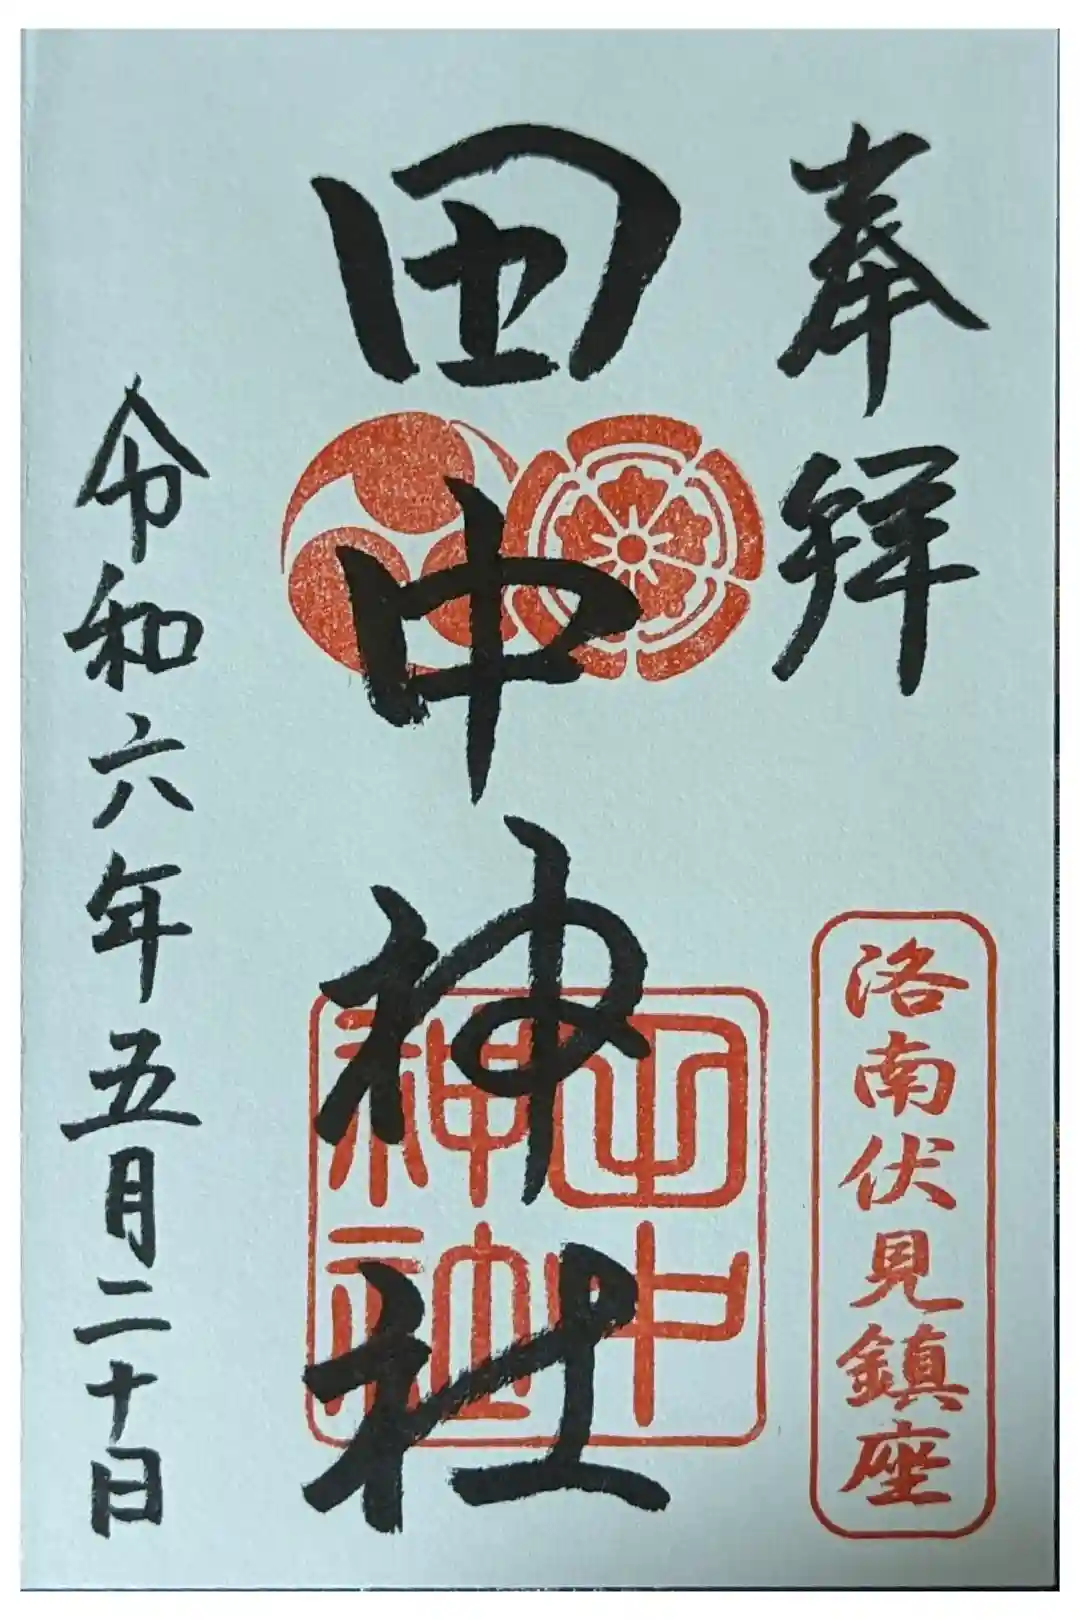 奉拝
洛南伏見鎮座
田中神社
田中
神社
令和六年五月二十日